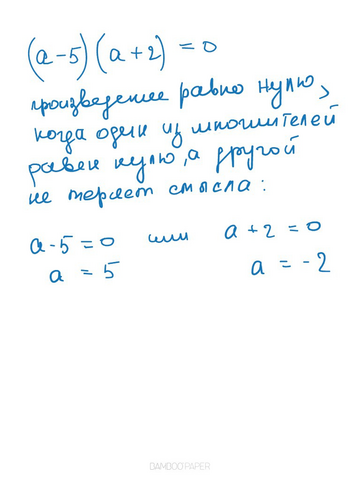 (a-5)(a+2) = 0
произведение равно нулю,
когда один из множителей
равен нулю, а другой
не теряет смысла:
a-5=0 или a+2=0
a = 5 a = -2
BAMBOO PAPER